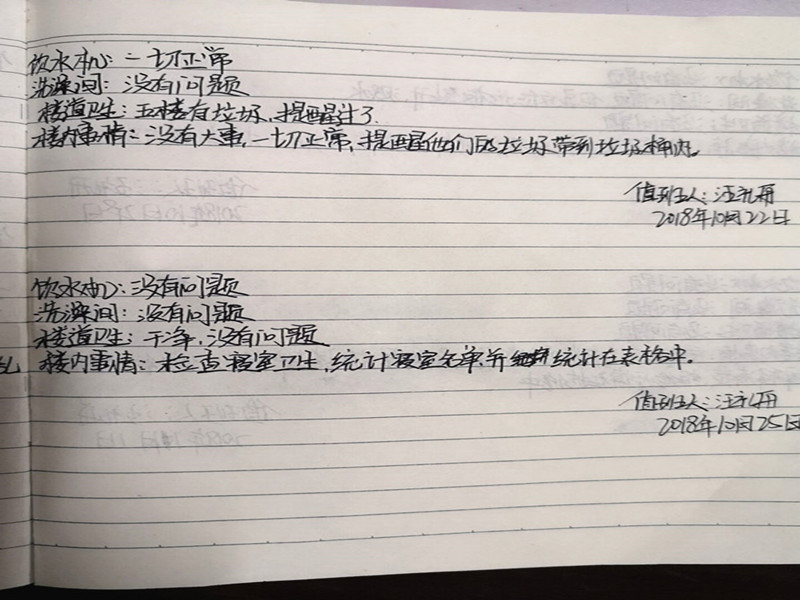 饮水机：一切正常
洗澡间：没有问题
楼道卫生：五楼有垃圾，提醒过了.
楼内事情：没有大事，一切正常，提醒他们把垃圾带到垃圾桶内.
值班人：汪礼丹
2018年10月22日
饮水机：没有问题
洗澡间：没有问题
楼道卫生：干净，没有问题
楼内事情：检查寝室卫生，统计寝室名单并统计在表格中.
值班人：汪礼丹
2018年10月25日